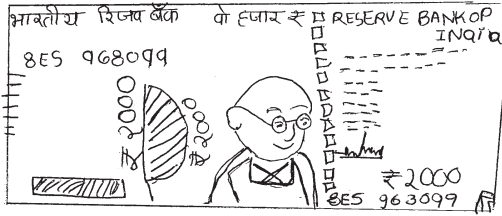 भारतीय रिजव बैंक वो हजार ₹
RESERVE BANK OP
INQIA
8ES 968099
₹2000
₹2000
₹2000
8ES 963099